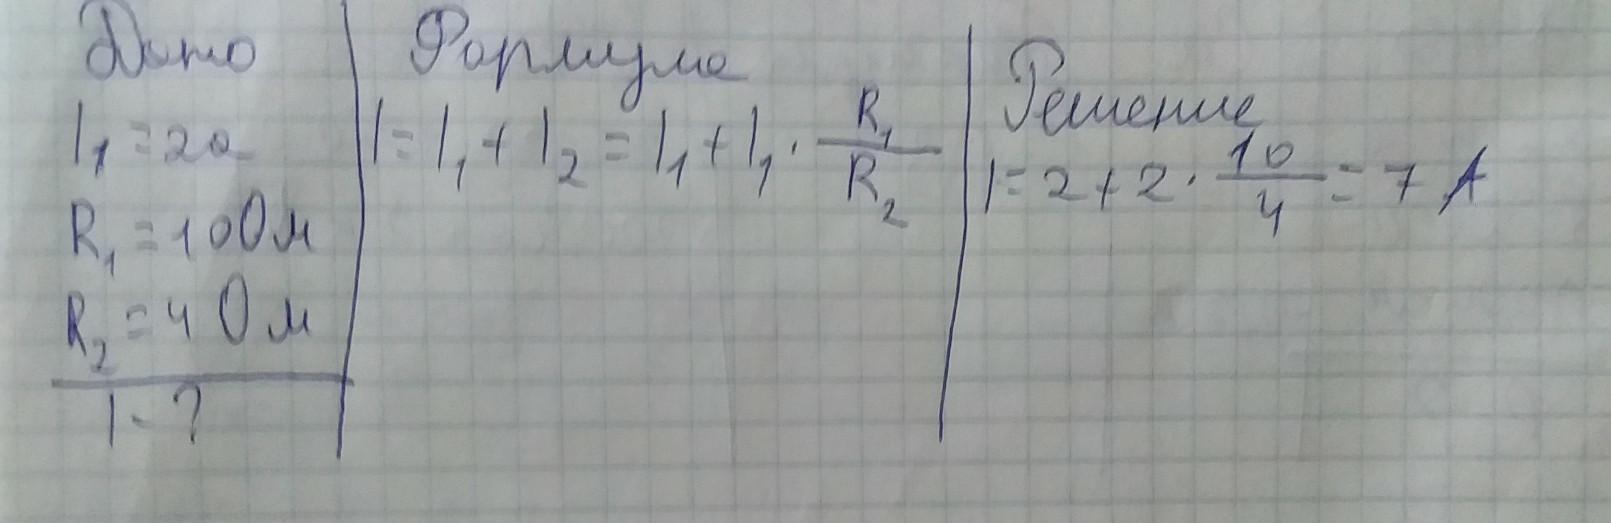 Дано
I₁ = 2а
R₁ = 10Ом
R₂ = 4 Ом
I - ?
Формула
I = I₁ + I₂ = I₁ + I₁ · R₁/R₂
Решение
I = 2 + 2 · 10/4 = 7 А